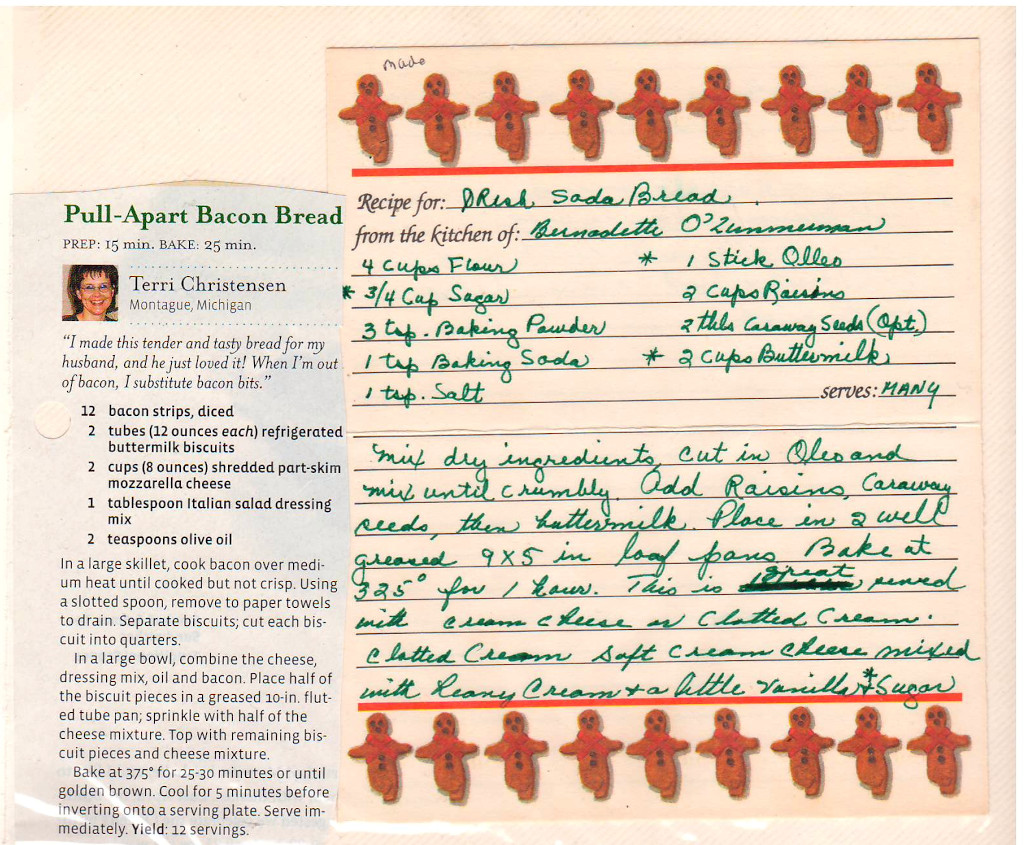 Pull-Apart Bacon Bread
PREP: 15 min. BAKE: 25 min.
Terri Christensen
Montague, Michigan
“I made this tender and tasty bread for my
husband, and he just loved it! When I'm out
of bacon, I substitute bacon bits.”
12 bacon strips, diced
2 tubes (12 ounces each) refrigerated
buttermilk biscuits
2 cups (8 ounces) shredded part-skim
mozzarella cheese
1 tablespoon Italian salad dressing
mix
2 teaspoons olive oil
In a large skillet, cook bacon over medi-
um heat until cooked but not crisp. Using
a slotted spoon, remove to paper towels
to drain. Separate biscuits; cut each bis-
cuit into quarters.
In a large bowl, combine the cheese,
dressing mix, oil and bacon. Place half of
the biscuit pieces in a greased 10-in. flut-
ed tube pan; sprinkle with half of the
cheese mixture. Top with remaining bis-
cuit pieces and cheese mixture.
Bake at 375° for 25-30 minutes or until
golden brown. Cool for 5 minutes before
inverting onto a serving plate. Serve im-
mediately. Yield: 12 servings.
made
Recipe for: IRish Soda Bread
from the kitchen of: Bernadette O'Zimmerman
4 Cups Flour * 1 Stick Olleo
* 3/4 Cup Sugar 2 Cups Raisins
3 tsp. Baking Powder 2 tbls Caraway Seeds (Opt.)
1 tsp Baking Soda * 2 Cups Buttermilk
1 tsp. Salt serves: MANY
Mix dry ingredients, cut in Oleo and
mix until crumbly. Add Raisins, Caraway
seeds, then buttermilk. Place in 2 well
greased 9X5 in loaf pans. Bake at
325° for 1 hour. This is great served
with cream cheese or Clotted Cream.
Clotted Cream Soft Cream Cheese mixed
with Heavy Cream + a little Vanilla + * Sugar